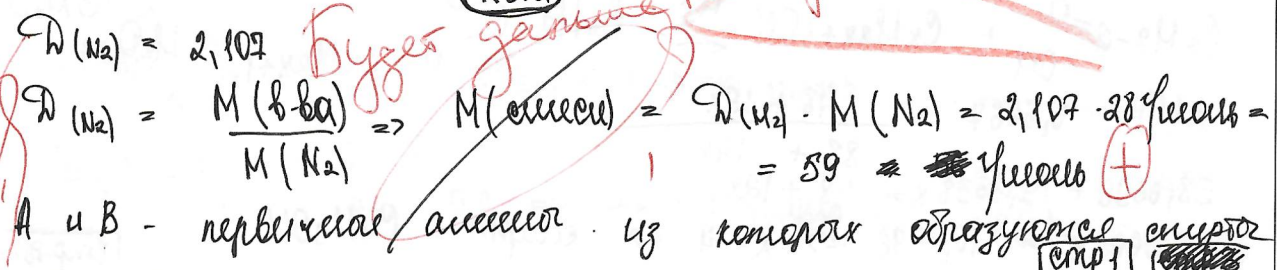 D(N2) = 2,107
Будет дальше
D(N2) = M(в-ва) / M(N2) => M(смеси) = D(N2) · M(N2) = 2,107 · 28 г/моль =
= 59 г/моль +
А и В - первичные амины из которых образуются спирты
стр 1